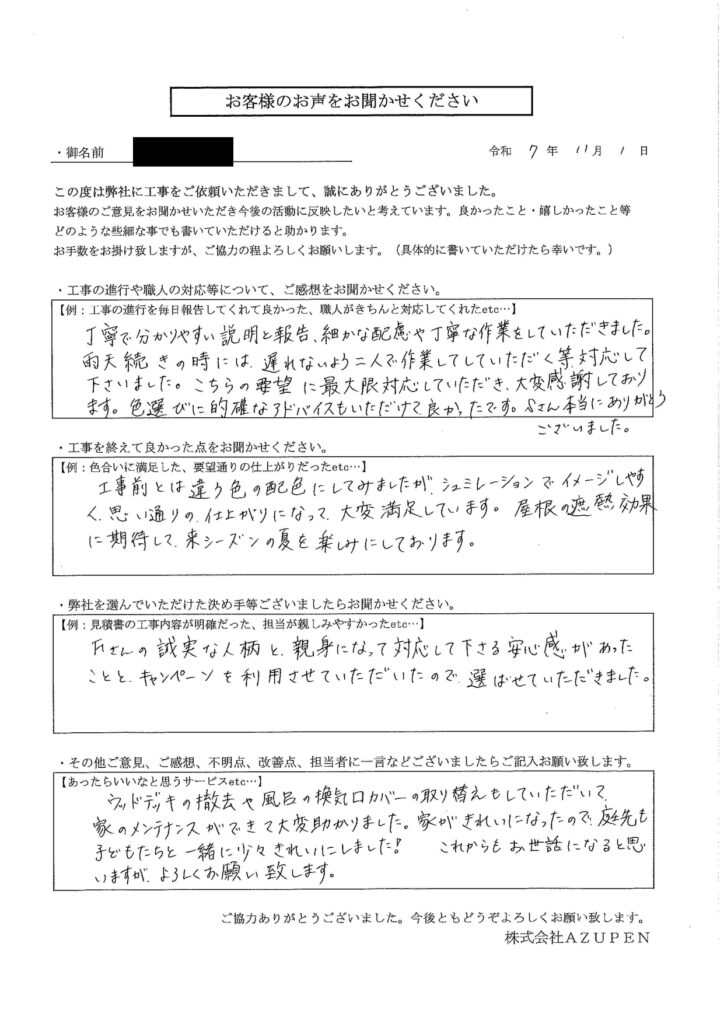 お客様のお声をお聞かせください
・御名前
令和 7 年 11月 1 日
この度は弊社に工事をご依頼いただきまして、誠にありがとうございました。
お客様のご意見をお聞かせいただき今後の活動に反映したいと考えています。良かったこと・嬉しかったこと等
どのような些細な事でも書いていただけると助かります。
お手数をお掛け致しますが、ご協力の程よろしくお願いします。（具体的に書いていただけたら幸いです。）
・工事の進行や職人の対応等について、ご感想をお聞かせください。
【例：工事の進行を毎日報告してくれて良かった、職人がきちんと対応してくれたetc…】
丁寧で分かりやすい説明と報告、細かな配慮や丁寧な作業をしていただきました。
雨天続きの時には、遅れないよう二人で作業してしていただく等、対応して
下さいました。こちらの要望に最大限対応していただき、大変感謝しており
ます。色選びに的確なアドバイスもいただけて良かったです。Sさん本当にありがとう
ございました。
・工事を終えて良かった点をお聞かせください。
【例：色合いに満足した、要望通りの仕上がりだったetc…】
工事前とは違う色の配色にしてみましたが、シュミレーションでイメージしやす
く、思い通りの仕上がりになって、大変満足しています。屋根の遮熱効果
に期待して、来シーズンの夏を楽しみにしております。
・弊社を選んでいただけた決め手等ございましたらお聞かせください。
【例：見積書の工事内容が明確だった、担当が親しみやすかったetc…】
さんの誠実な人柄と、親身になって対応して下さる安心感があった
ことと、キャンペーンを利用させていただいたので、選ばせていただきました。
・その他ご意見、ご感想、不明点、改善点、担当者に一言などございましたらご記入お願い致します。
【あったらいいなと思うサービスetc…】
ウッドデッキの撤去や風呂の換気口カバーの取り替えもしていただいて、
家のメンテナンスができて大変助かりました。家がきれいになったので、庭先も
子どもたちと一緒に少々きれいにしました! これからもお世話になると思
いますが、よろしくお願い致します。
ご協力ありがとうございました。今後ともどうぞよろしくお願い致します。
株式会社ＡＺＵＰＥＮ